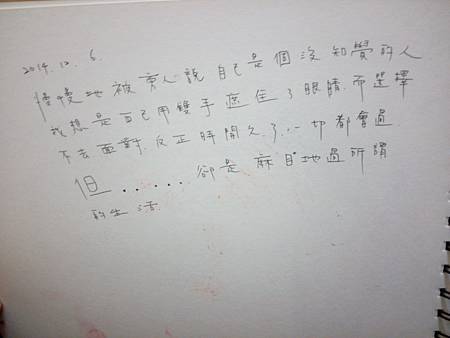 2014.12.6.
慢慢地被旁人說自己是個沒知覺的人
我想是自己用雙手遮住了眼睛而選擇
不去面對.反正時間久了...一切都會過
但......卻是麻目地過所謂
的生活.